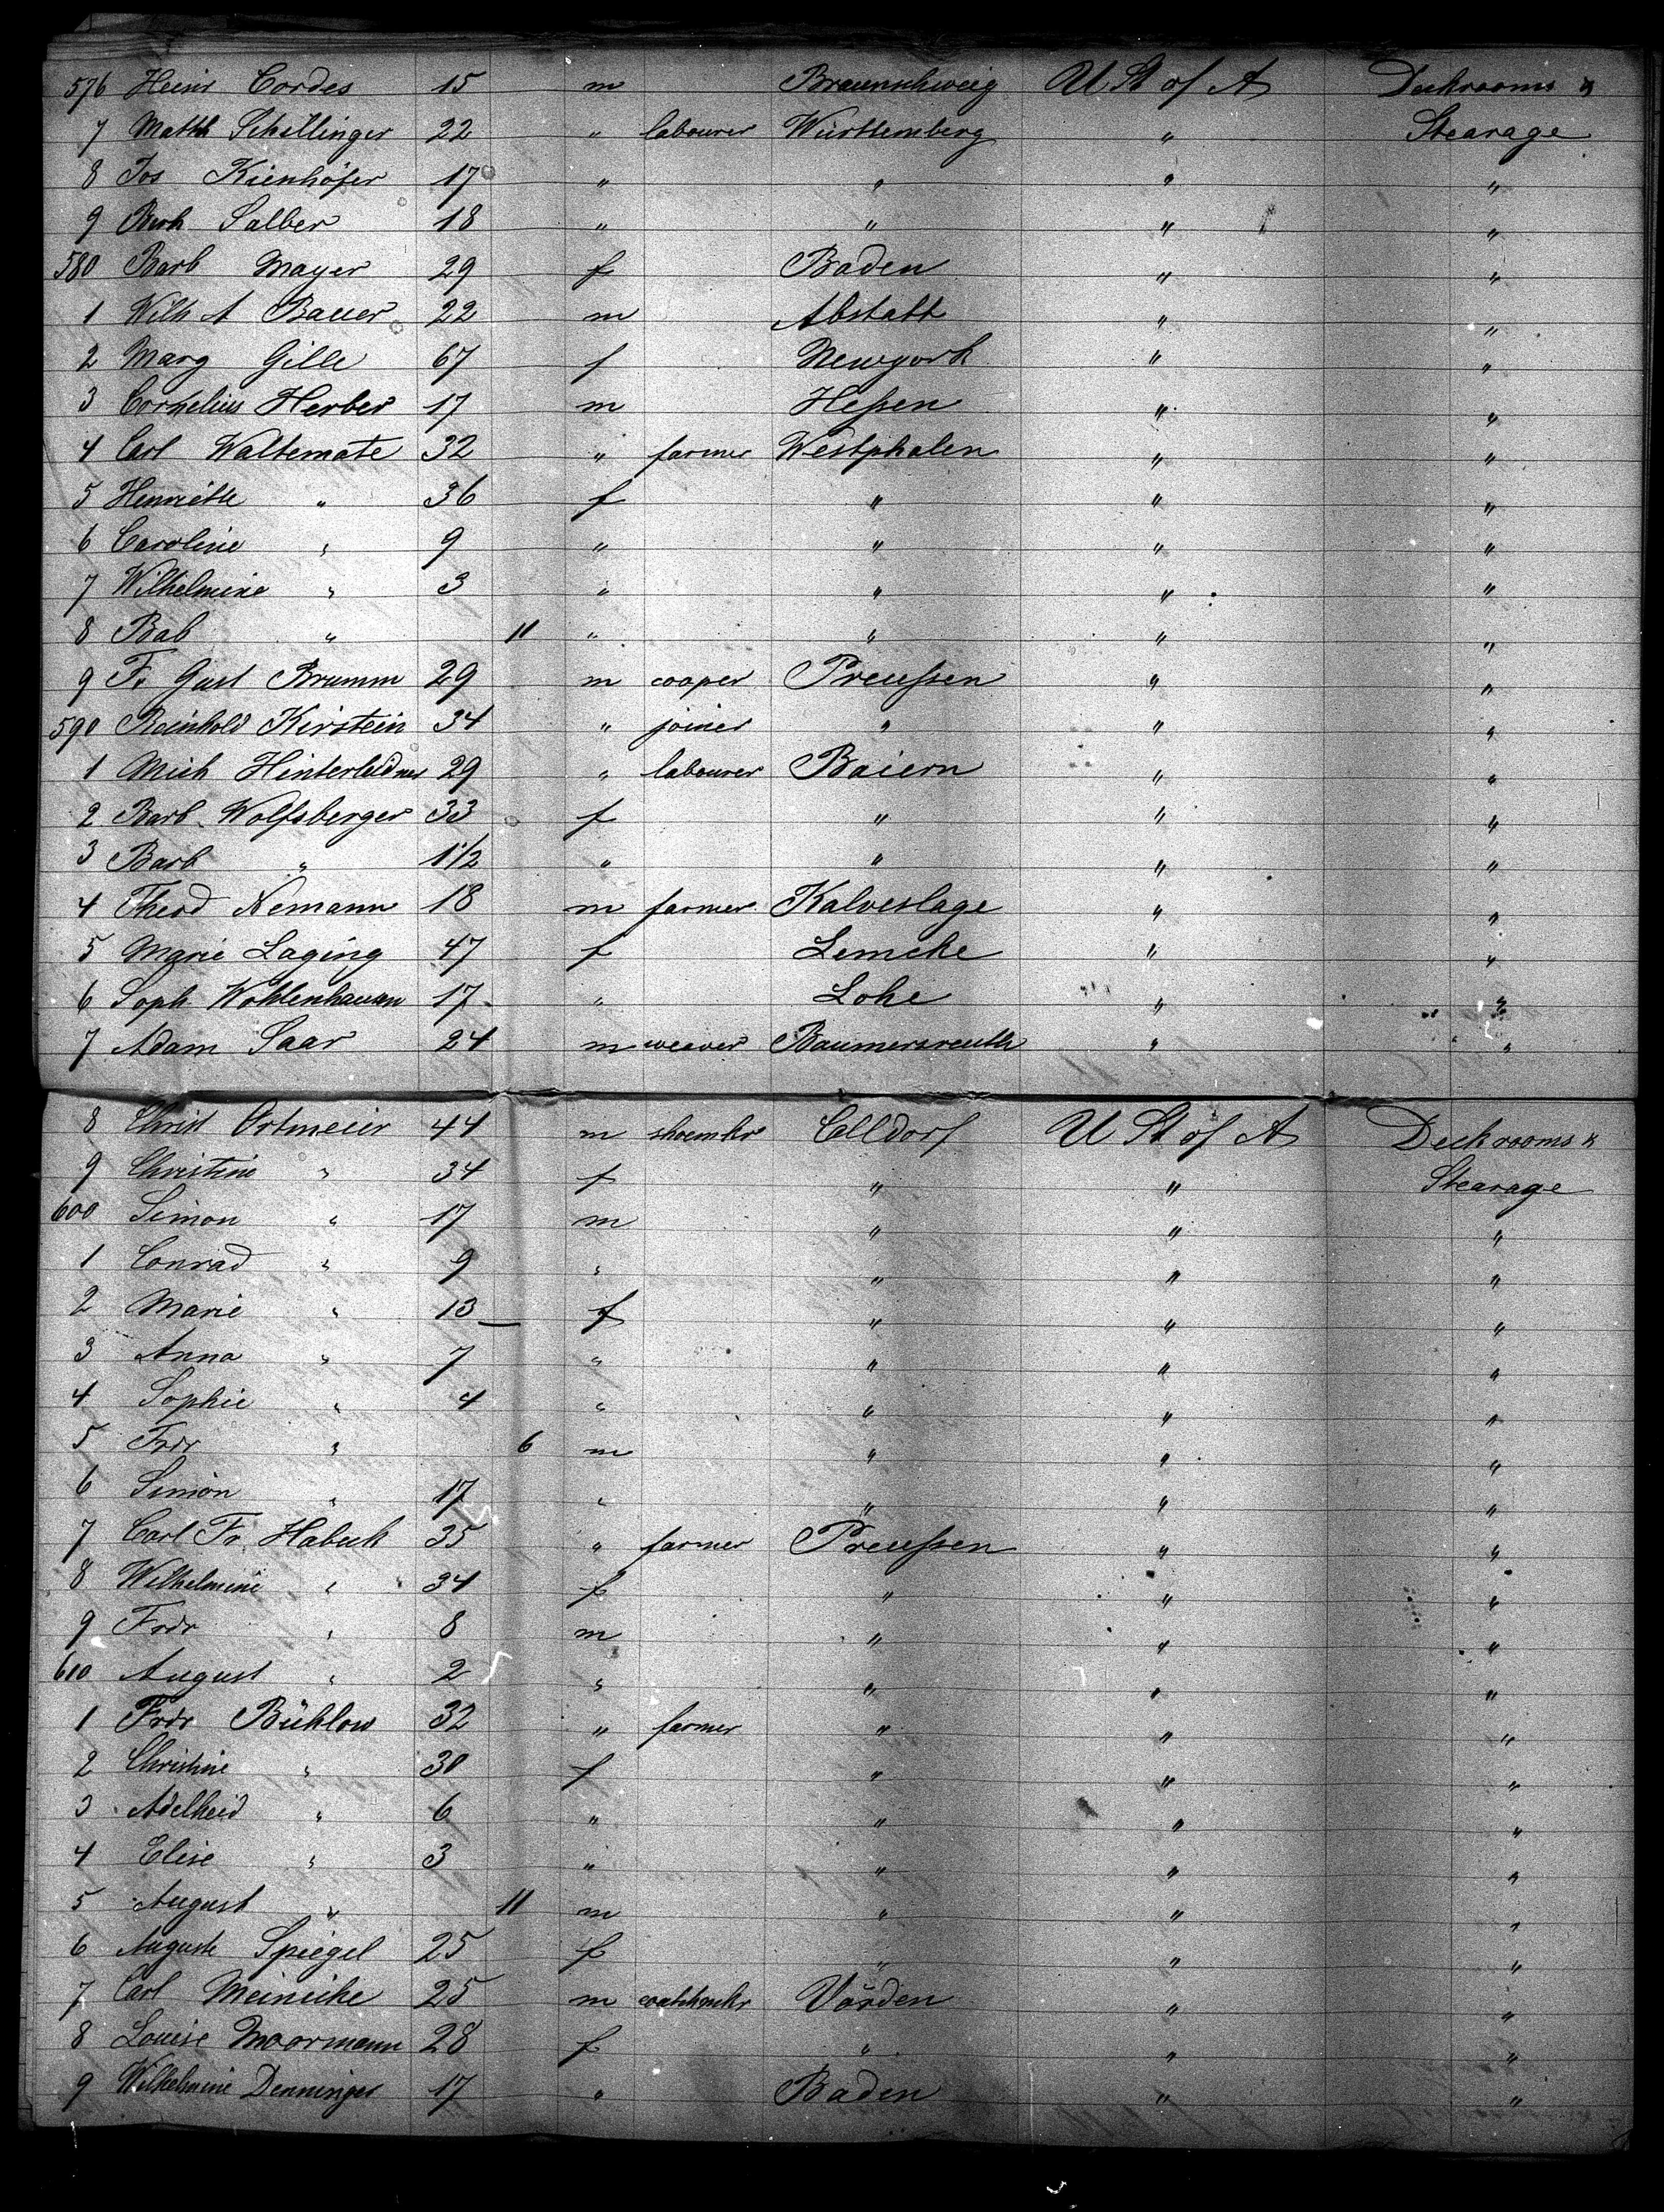 576 Heinr Cordes 15 m Braunschweig U St of A Deckrooms &
7 Matth Schillinger 22 " labourer Württemberg " Stearage
8 Jos Kienhöfer 17 " " " "
9 Salber 18 " " " "
580 Barb Mayer 29 f Baden " "
1 Wilh A Bauer 22 m Abstatt " "
2 Marg Gille 67 f Newyork " "
3 Cornelius Herber 17 m Heſsen " "
4 Carl Waltemate 32 " farmer Westphalen " "
5 Henriette " 36 f " " "
6 Caroline " 9 " " " "
7 Wilhelmine " 3 " " " "
8 Bab " 11 " " " "
9 Fr Gust Brumm 29 m cooper Preuſsen " "
590 Reinhold Kirstein 34 " joiner " " "
1 Mich Hinterleidner 29 " labourer Baiern " "
2 Barb Wolfsberger 33 f " " "
3 Barb " 1 1/2 " " " "
4 Theod Nemann 18 m farmer Kalveslage " "
5 Marie Laging 47 f Lemcke " "
6 Soph Wohlenhausen 17 " Lohe " "
7 Adam Saar 24 m weaver Baumersreuth " "
8 Christ Ortmeier 44 m shoemkr Calldorf U St of A Deckrooms &
9 Christine " 34 f " " Stearage
600 Simon " 17 m " " "
1 Conrad " 9 " " " "
2 Marie " 13 f " " "
3 Anna " 7 " " " "
4 Sophie " 4 " " " "
5 Frdr " 6 m " " "
6 Simon " 17 " " " "
7 Carl Fr. Habeck 35 " farmer Preuſsen " "
8 Wilhelmine " 34 f " " "
9 Frdr " 8 m " " "
610 August " 2 " " " "
1 Frdr Bühlow 32 " farmer " " "
2 Christine " 30 f " " "
3 Adelheid " 6 " " " "
4 Elise " 3 " " " "
5 August " 11 m " " "
6 Auguste Spiegel 25 f " " "
7 Carl Meinicke 25 m Vörden " "
8 Louise Moormann 28 f " " "
9 Wilhelmine Denninger 17 " Baden " "